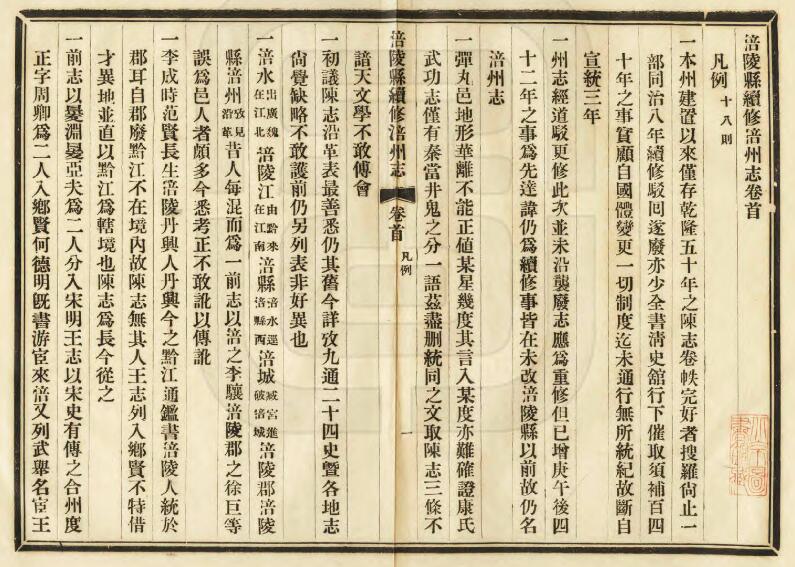 涪陵縣續修涪州志卷首
凡例 十八則
一本州建置以來僅存乾隆五十年之陳志卷帙完好者搜羅尙止一
部同治八年續修駁回遂廢亦少全書淸史舘行下催取須補百四
十年之事實顧自國體變更一切制度迄未通行無所統紀故斷自
宣統三年
一州志經道駁更修此次並未沿襲廢志應爲重修但已增庚午後四
十二年之事爲先達諱仍爲續修事皆在未改涪陵縣以前故仍名
涪州志
一彈丸邑地形華離不能正值某星幾度其言入某度亦難確證康氏
武功志僅有秦當井鬼之分一語茲盡删統同之文取陳志三條不
諳天文學不敢傅會
涪陵縣續修涪州志 卷首 凡例 一
一初議陳志沿革表最善悉仍其舊今詳攷九通二十四史暨各地志
尙覺缺略不敢護前仍另列表非好異也
一涪水出廣魏在江北涪陵江由黔來在江南涪縣涪水逕涪縣西涪城臧宮進破涪城涪陵郡涪陵
縣涪州攷見沿革昔人每混而爲一前志以涪之李驤涪陵郡之徐巨等
誤爲邑人者頗多今悉考正不敢訛以傳訛
一李成時范賢長生涪陵丹興人丹興今之黔江通鑑書涪陵人統於
郡耳自郡廢黔江不在境內故陳志無其人王志列入鄉賢不特借
才異地並直以黔江爲轄境也陳志爲長今從之
一前志以㬊淵㬊亞夫爲二人分入宋明王志以宋史有傳之合州度
正字周卿爲二人入鄉賢何德明旣書游宦來涪又列武舉名宦王